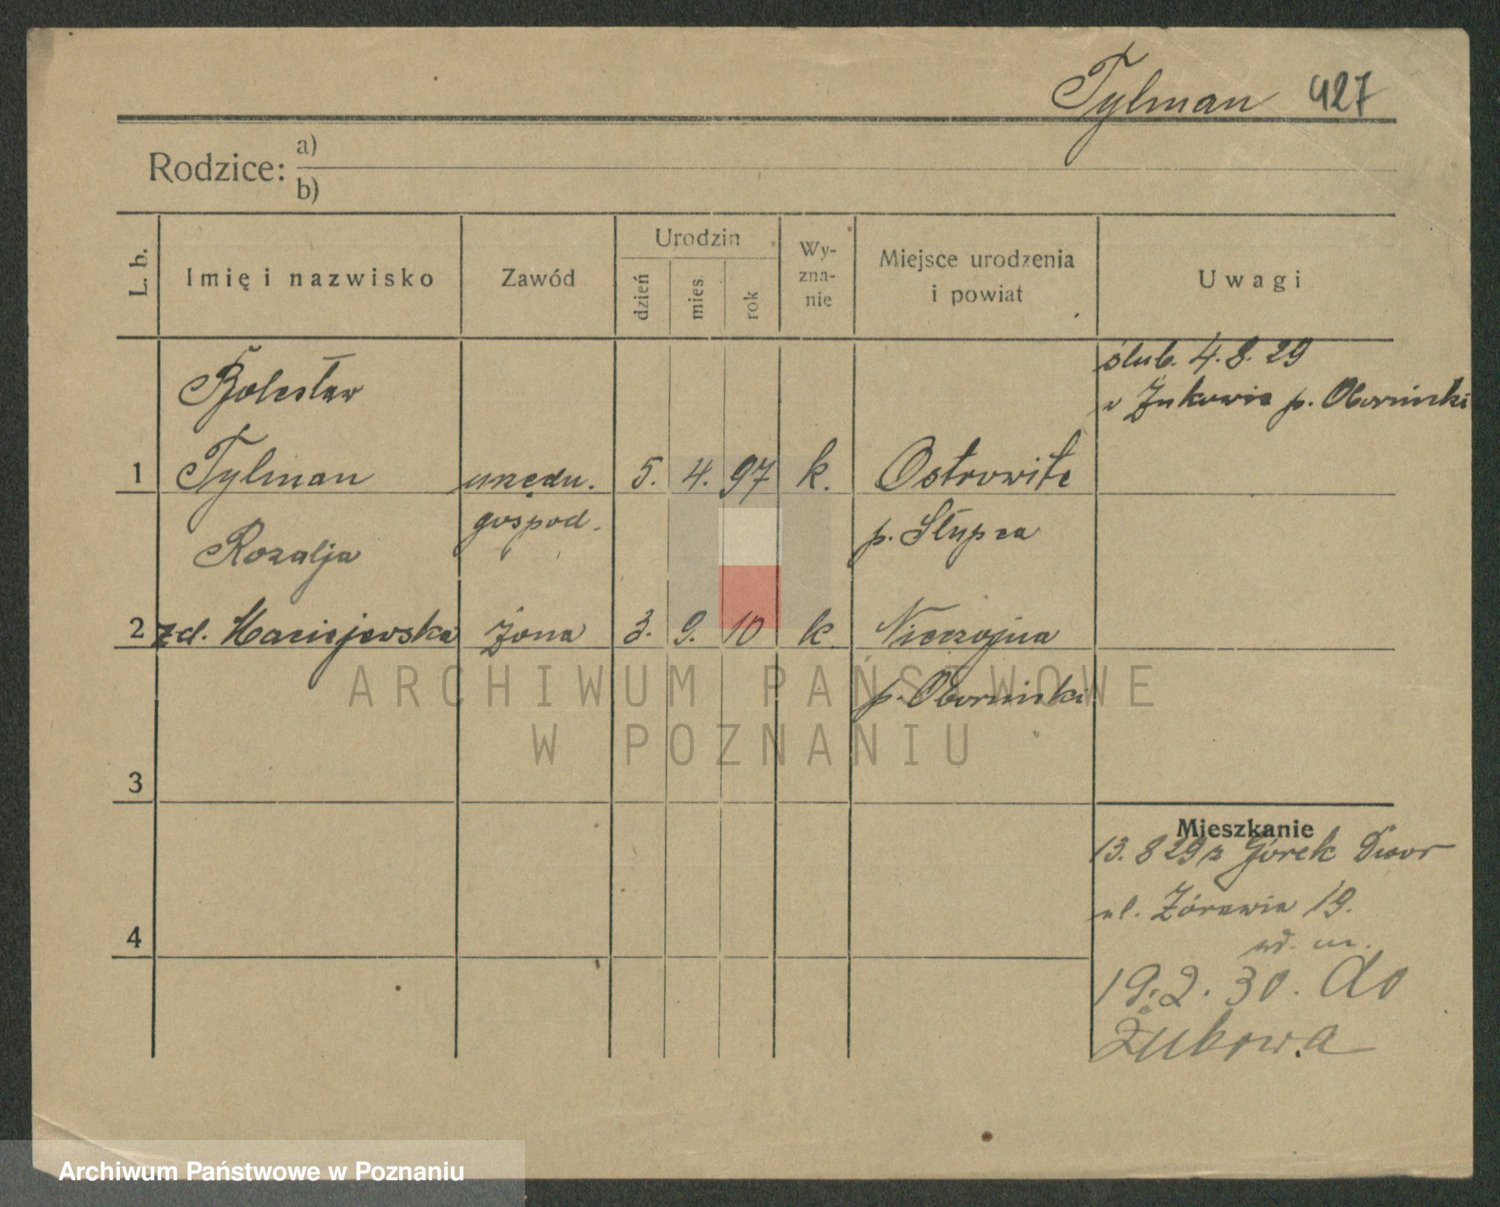 Tylman 427
Rodzice: a)
b)
L. b.
Imię i nazwisko
Zawód
Urodzin
dzień
mies.
rok
Wy-
zna-
nie
Miejsce urodzenia
i powiat
Uwagi
ślub. 4. 8. 29
w Żukowie p. Obornicki
Bolesław
1 Tylman urzędn. 5. 4. 97 k. Ostrowite
gospod. p. Słupca
Rozalja
2 zd. Maciejewska żona 3. 9. 10 k. Nieczajna
p. Obornicki
3
4
Mieszkanie
13. 8 29 z Górek Dwor
ul. Żórawia 19.
19. 2. 30. do
Żukowa
ARCHIWUM PAŃSTWOWE
W POZNANIU
Archiwum Państwowe w Poznaniu